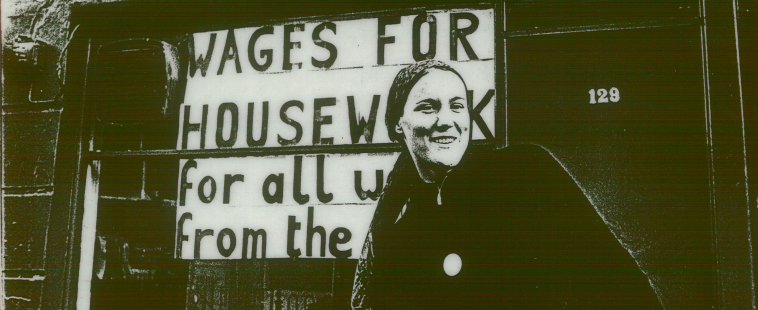 WAGES FOR
HOUSEW K
for all w
from the
129